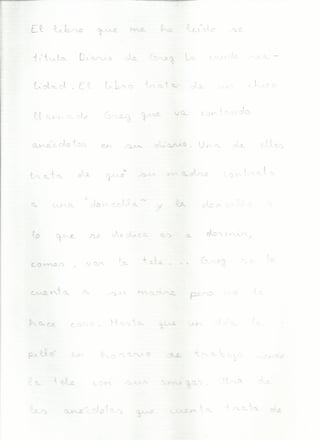 El libro que me he leído se
titula Diario de Greg La cruda rea-
lidad. El libro trata de un chico
llamado Greg que va contando
anécdotas en su diario. Una de ellas
trata de que su madre contrata
a una "doncella" y la doncella a
lo que se dedica es a dormir,
comer, ver la tele... Greg se lo
cuenta a su madre pero no le
hace caso. Hasta que un día la
pilló en horario de trabajo viendo
la tele con sus amigas. Otra de
las anécdotas que cuenta trata de